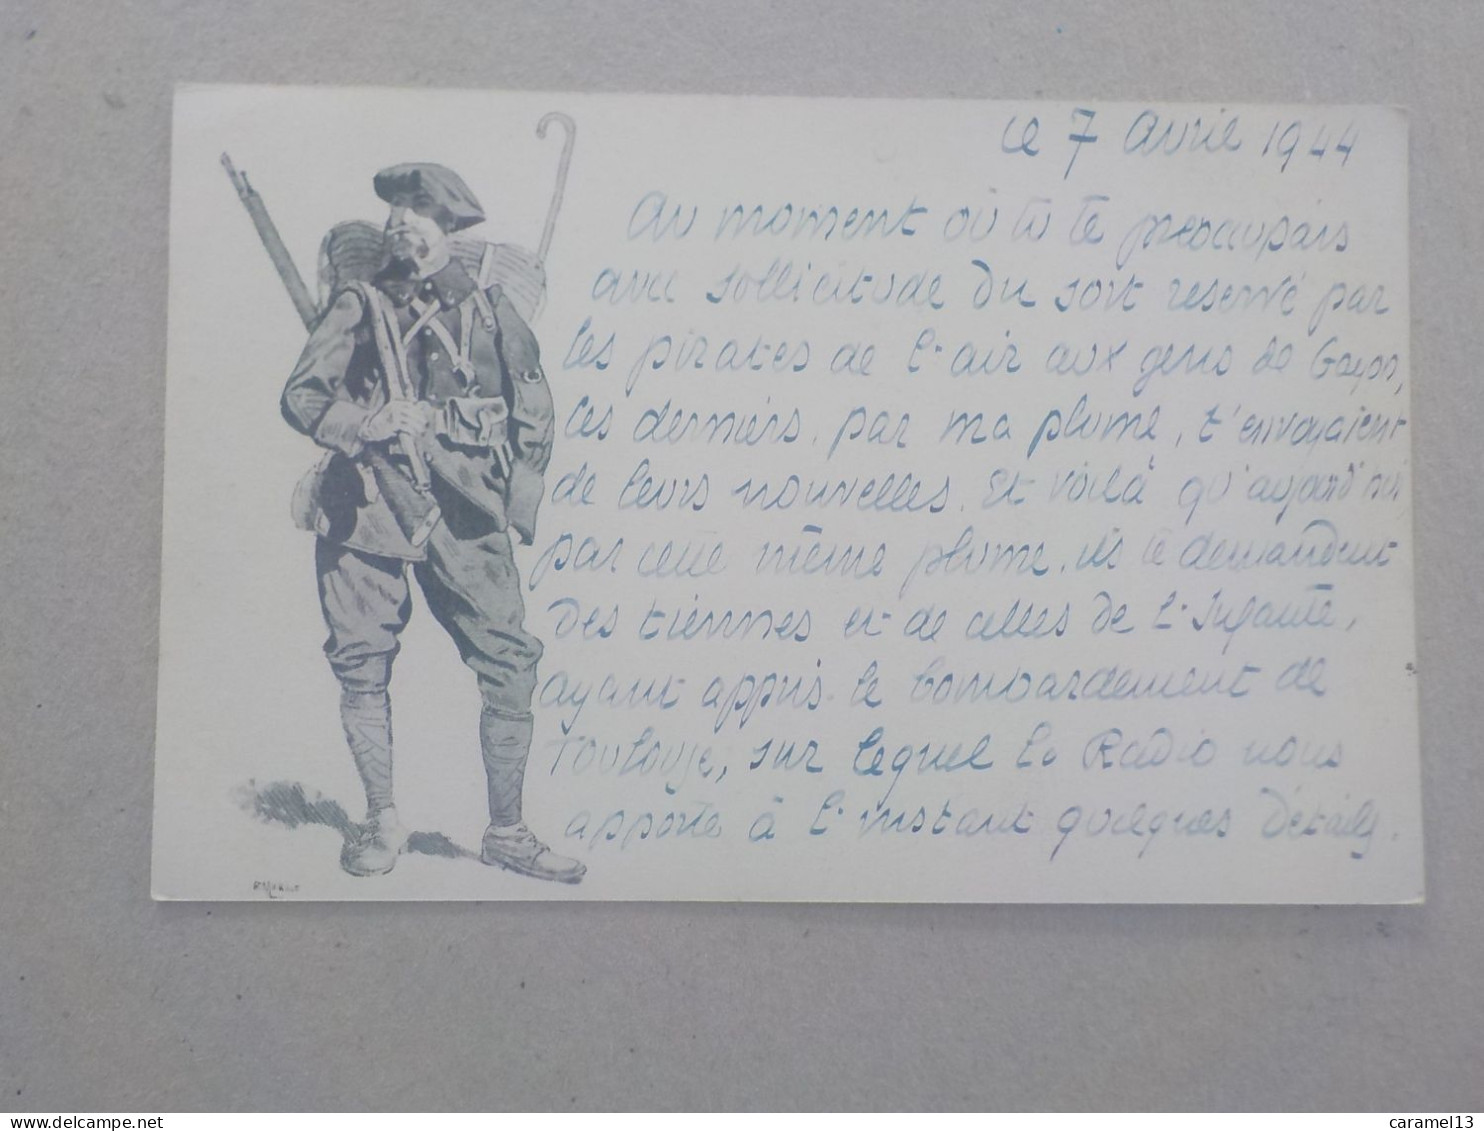 Le 7 Avril 1944
Au moment où tu te préoccupais
avec sollicitude du sort reservé par
les pirates de l'air aux gens de
les derniers, par ma plume, t'envoyaient
de leurs nouvelles. Et voilà qu'aujourd'hui
par cette même plume, ils te demandent
des tiennes et de celles de l'Infante,
ayant appris le bombardement de
Toulouse, sur lequel la Radio nous
apporte à l'instant quelques détails.
caramel13